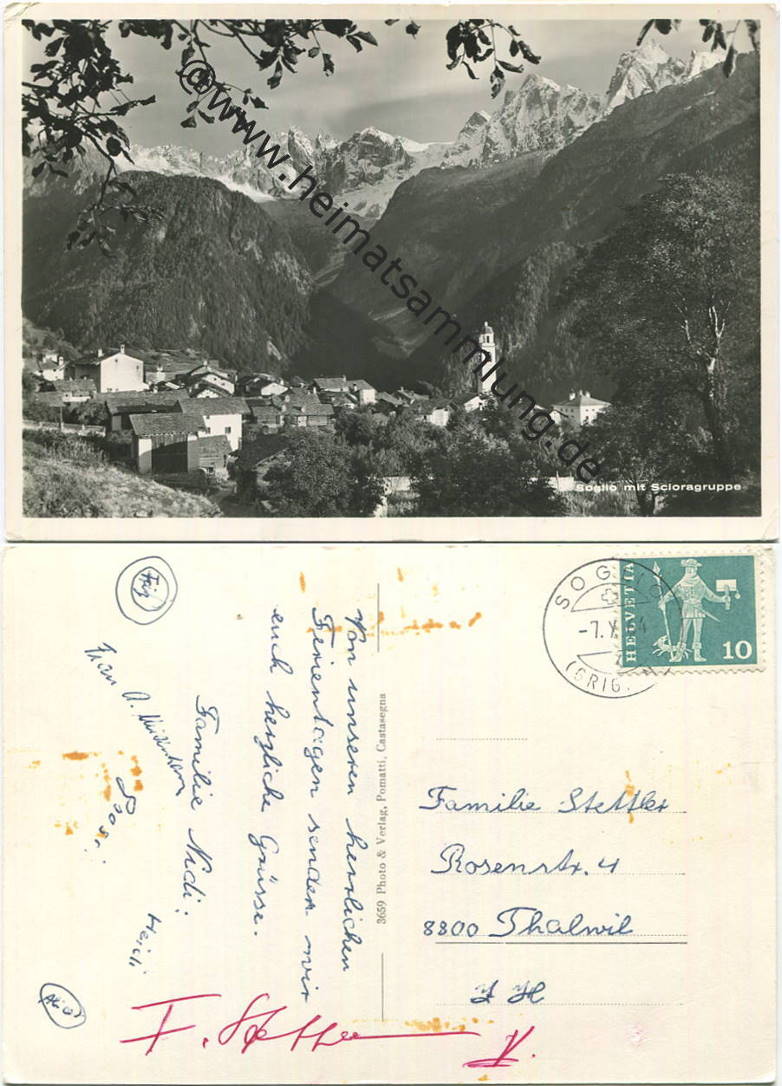 © www.heimatsammlung.de
Soglio mit Scioragruppe
Von unseren herrlichen
Ferientagen senden wir
euch herzliche Grüsse.
Familie Nidi:
Frau A.
Rosi
Heidi
3659 Photo & Verlag, Pomatti, Castasegna
HELVETIA
10
SOGLIO
-7.X
(GRIG.
Familie Stettler
Rosenstr. 4
8800 Thalwil
ZH
F. Stettler